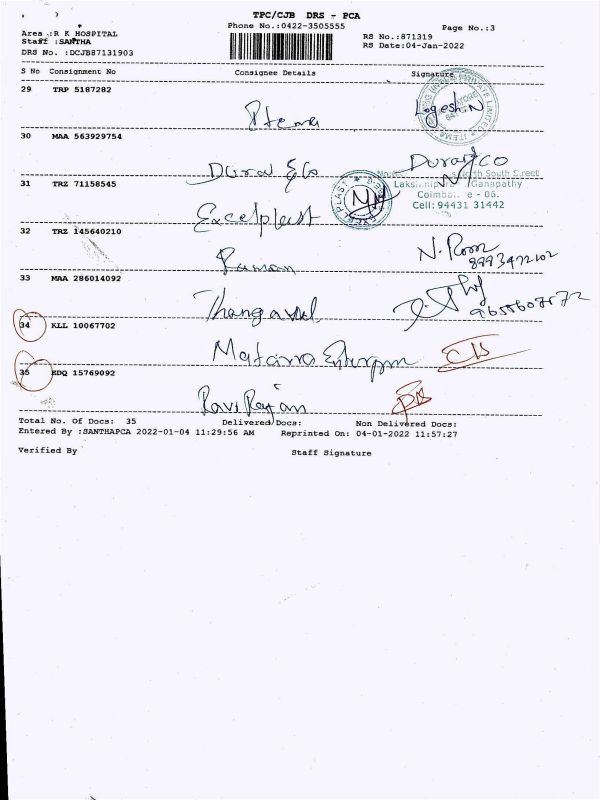 TPC/CJB DRS - PCA
Phone No.:0422-3505555
Page No.:3
Area :R K HOSPITAL
Staff :SANTHA
DRS No. :DCJB87131903
RS No.:871319
RS Date:04-Jan-2022
S No Consignment No Consignee Details Signature
29 TRP 5187282
Logesh.N
30 MAA 563929754
Durai & Co
Durai & Co
31 TRZ 71158545
South Street
Ganapathy
- 06.
Cell: 94431 31442
Excelplast
EXCELPLAST
32 TRZ 145640210
Raman
N. Ram
33 MAA 286014092
Thangavel
34 KLL 10067702
35 EDQ 15769092
Ravi Rajan
Total No. Of Docs: 35 Delivered Docs: Non Delivered Docs:
Entered By :SANTHAPCA 2022-01-04 11:29:56 AM Reprinted On: 04-01-2022 11:57:27
Verified By Staff Signature